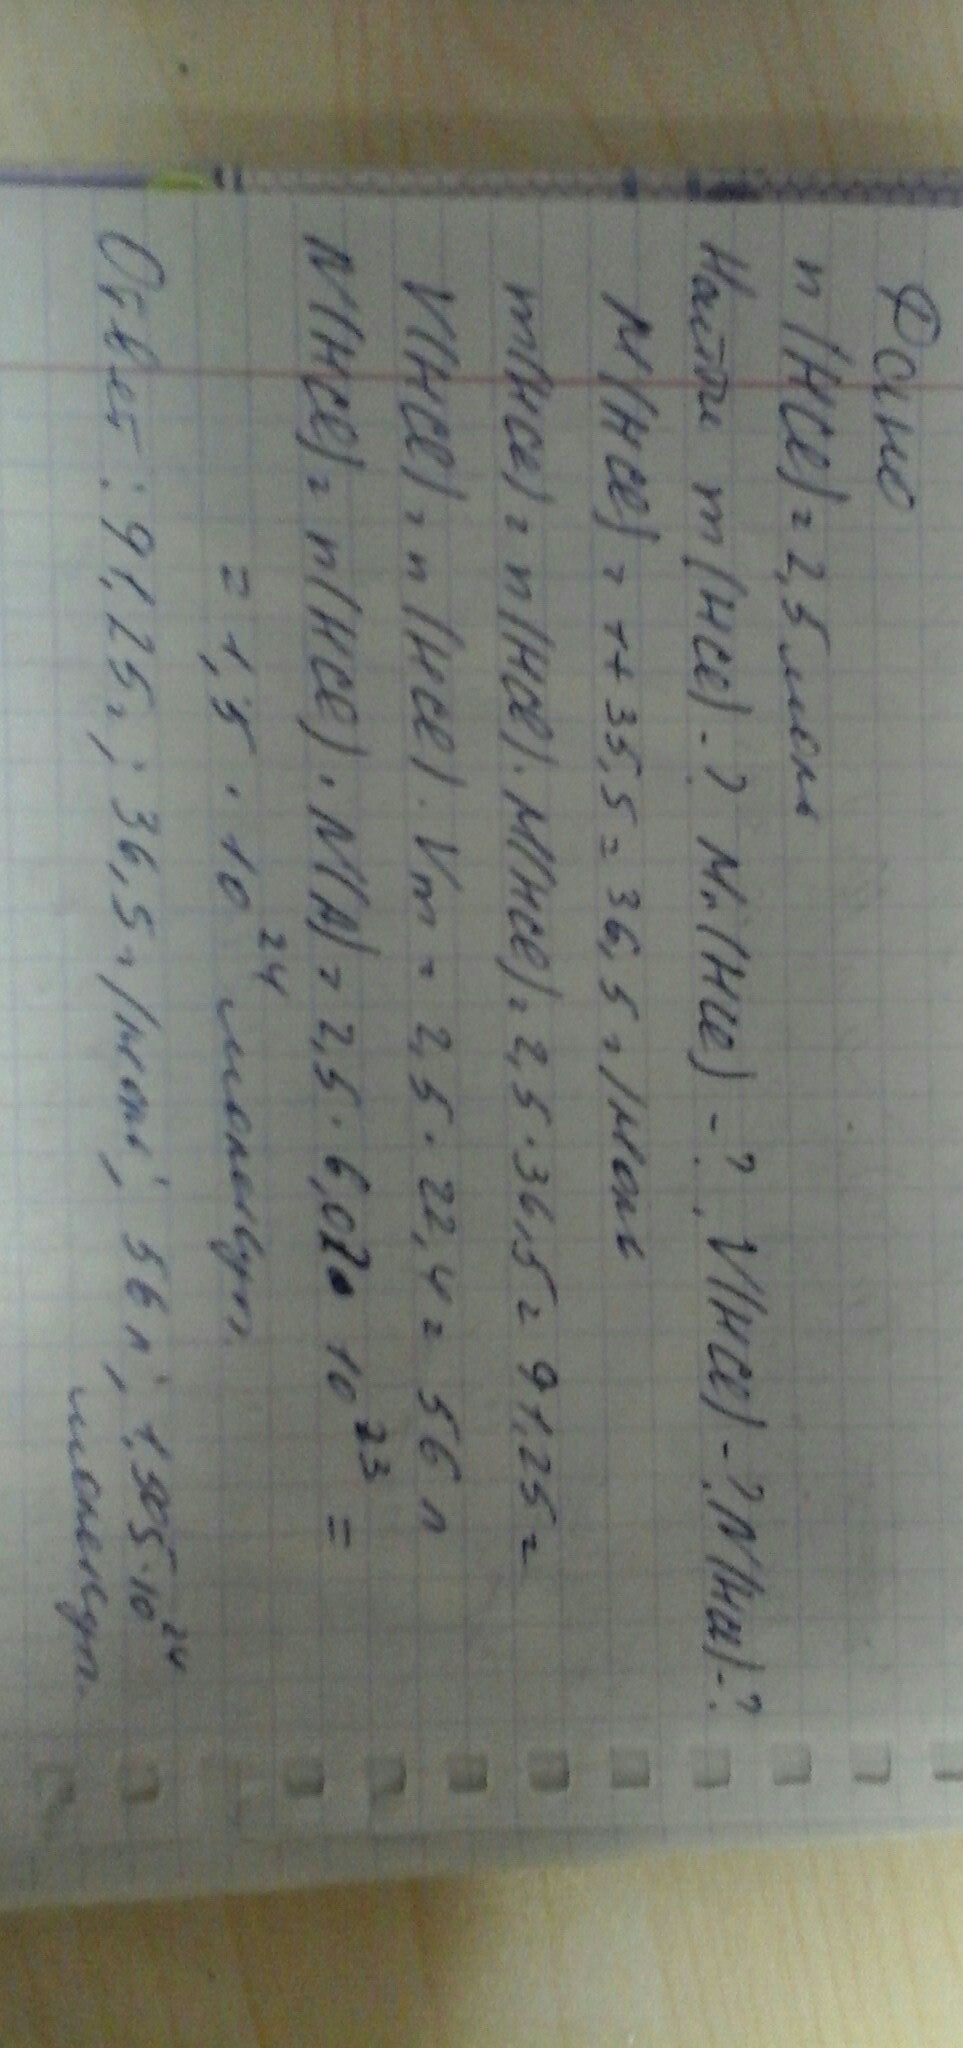 Дано
n(HCl) = 2,5 моль
Найти m(HCl)-? Mr(HCl)-?, V(HCl)-? N(HCl)-?
M(HCl) = 1+35,5 = 36,5 г/моль
m(HCl) = n(HCl)·M(HCl) = 2,5·36,5 = 91,25 г
V(HCl) = n(HCl)·Vm = 2,5·22,4 = 56 л
N(HCl) = n(HCl)·N(A) = 2,5·6,02·10²³ =
= 1,5·10²⁴ молекул.
Ответ: 91,25 г; 36,5 г/моль; 56 л; 1,505·10²⁴
молекул.